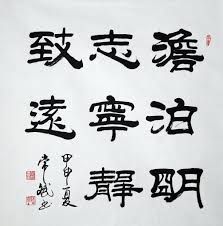 澹泊明
志寧靜
致遠
甲申夏
常